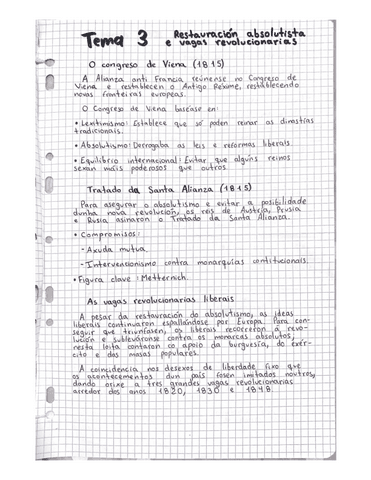 Tema 3
Restauración absolutista
e vagas revolucionarias
O congreso de Viena (1815)
A Alianza anti Francia reúnense no Congreso de
Viena e restablecen o Antigo Réxime, restablecendo
novas fronteiras europeas.
O Congreso de Viena baséase en:
• Lexitimismo: Establece que só poden reinar as dinastías
tradicionais.
• Absolutismo: Derrogaba as leis e reformas liberais
• Equilibrio internacional: Evitar que algúns reinos
sexan máis poderosos que outros.
Tratado da Santa Alianza (1815)
Para asegurar o absolutismo e evitar a posibilidade
dunha nova revolución, os reis de Austria, Prusia
e Rusia asinaron o Tratado da Santa Alianza.
• Compromisos:
- Axuda mutua.
- Intervencionismo contra monarquías contitucionais.
• Figura clave: Metternich.
As vagas revolucionarias liberais
A pesar da restauración do absolutismo, as ideas
liberais continuaron espallándose por Europa. Para con-
seguir que triunfasen, os liberais recorreron á revo-
lución e subleváronse contra os monarcas absolutos,
nesta loita contaron co apoio da burguesía, do exér-
cito e das masas populares.
A coincidencia nos desexos de liberdade fixo que
os acontecementos dun país fosen imitados noutros,
dando orixe a tres grandes vagas revolucionarias
arredor dos anos 1820, 1830 e 1848.